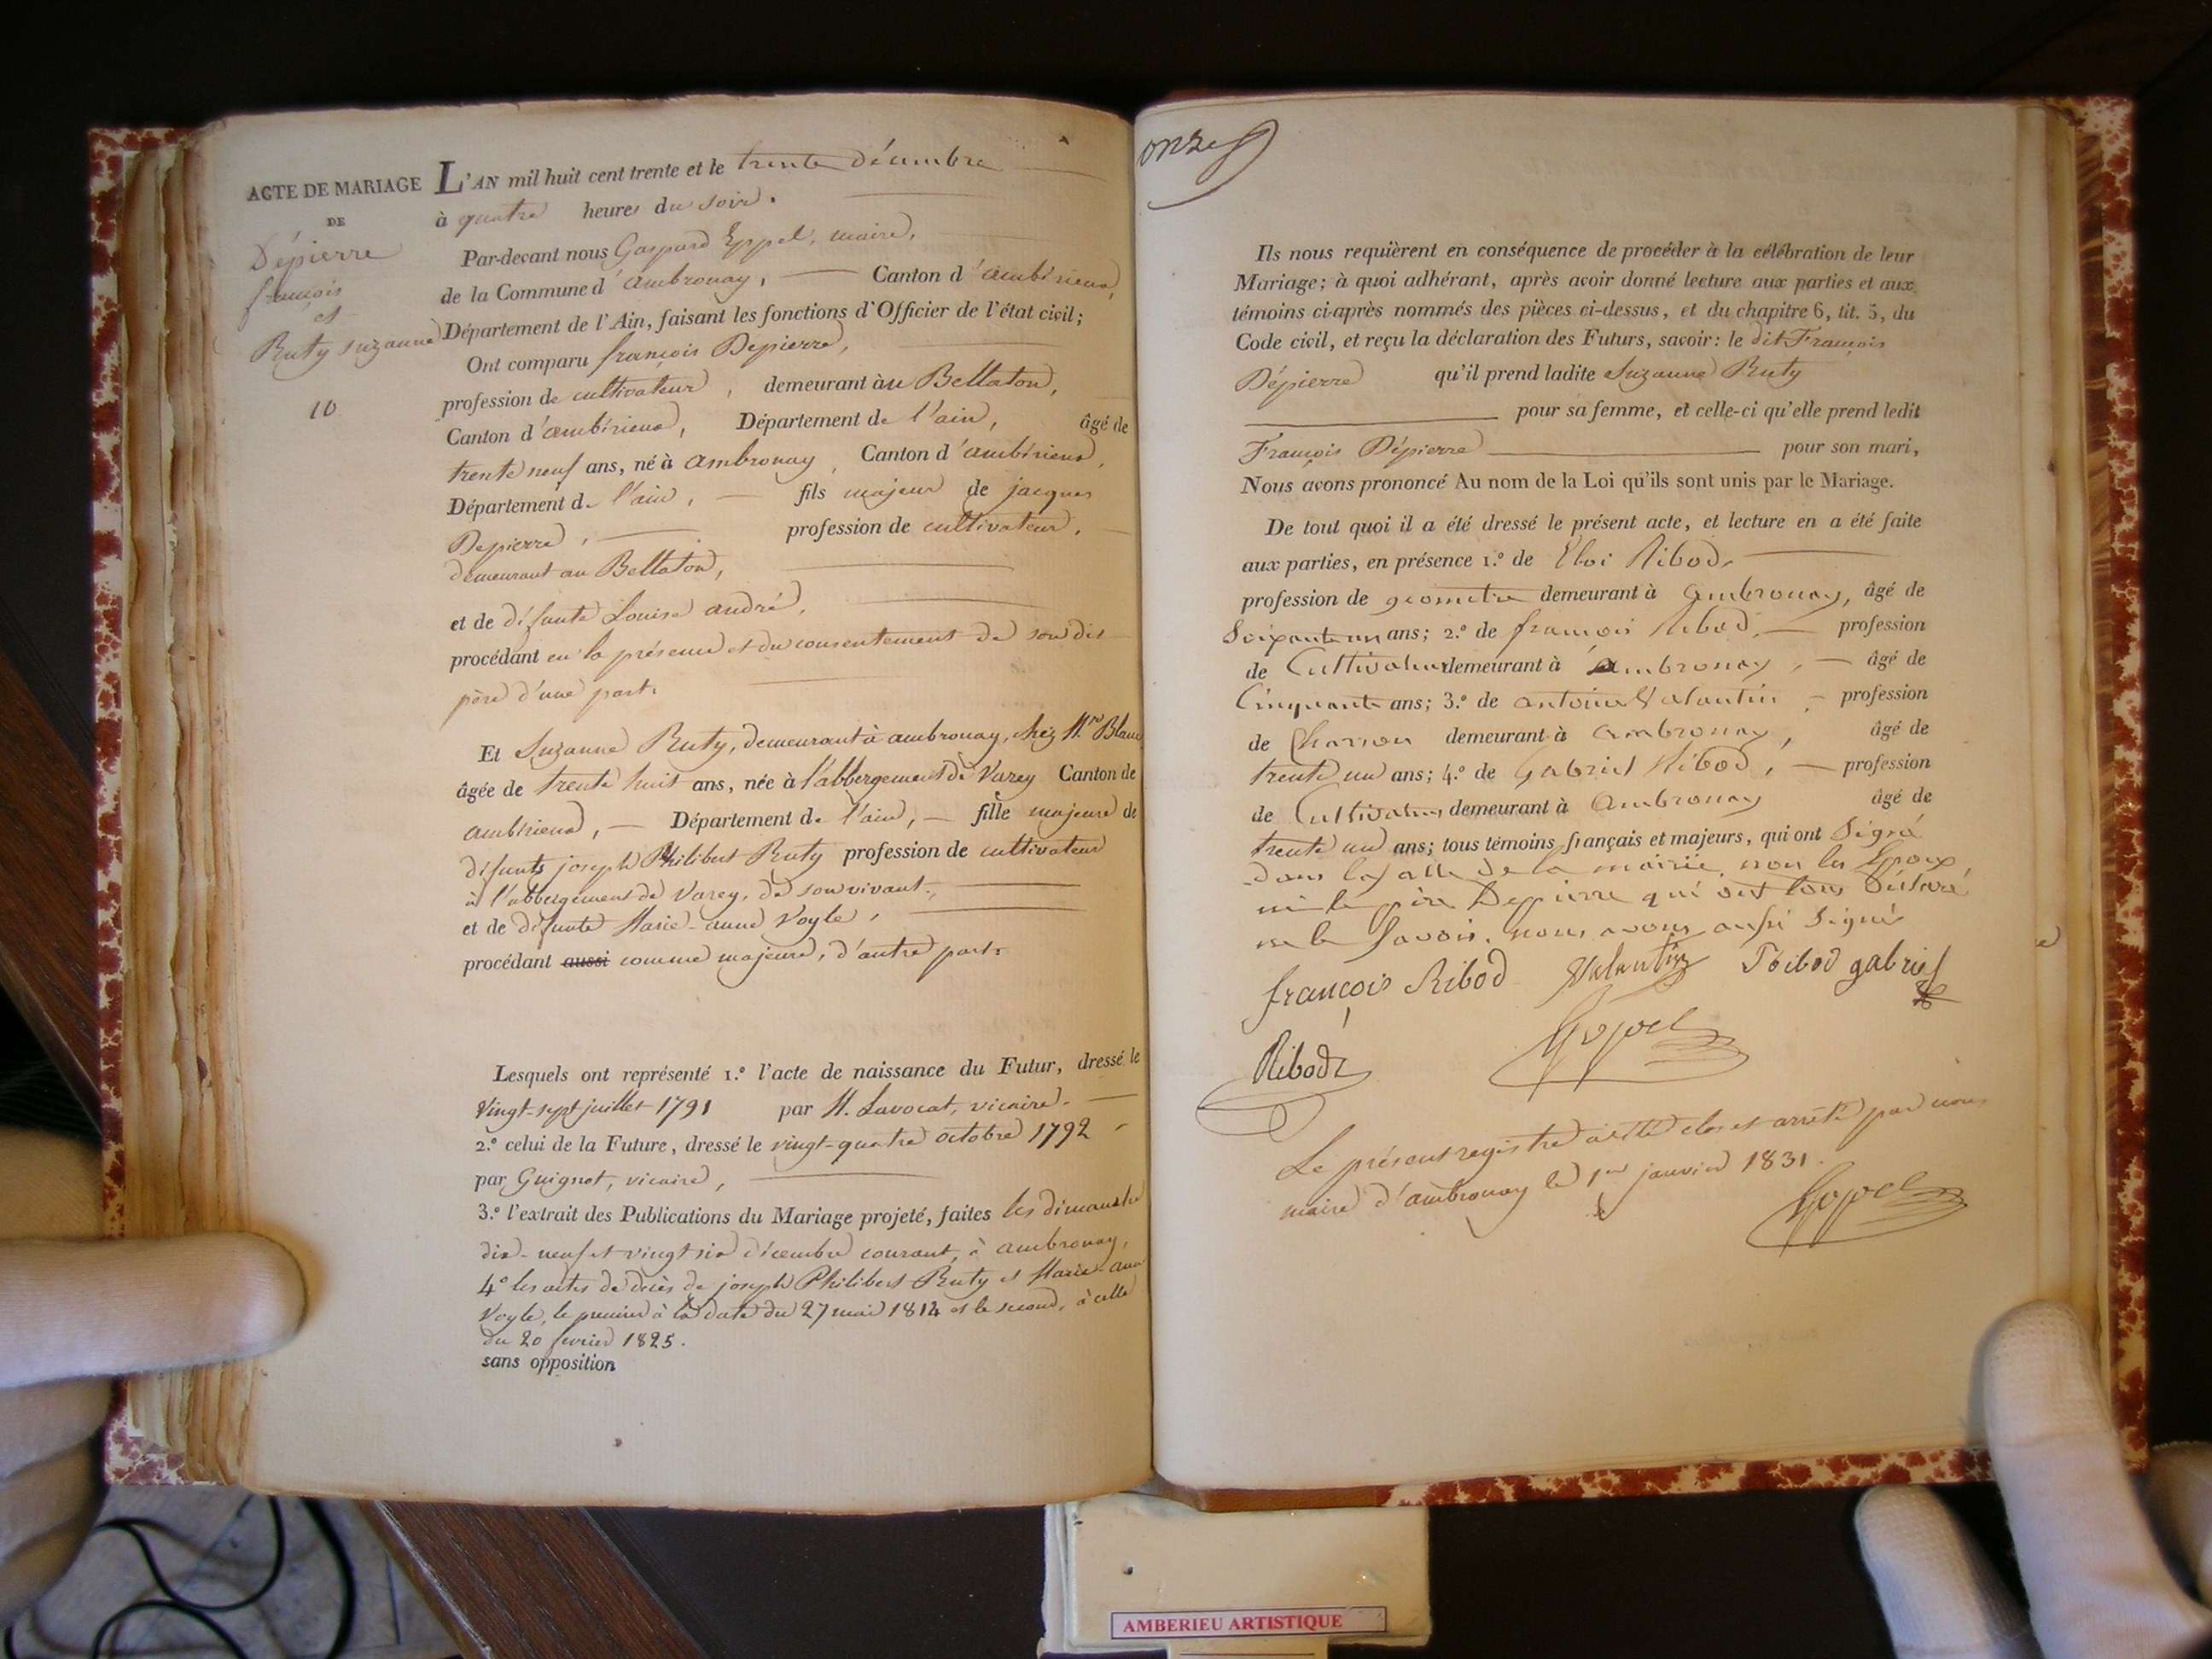 ACTE DE MARIAGE
DE
Dépierre
françois
et
Ruty suzanne
10
L'AN mil huit cent trente et le trente décembre
à quatre heures du soir.
Par-devant nous Gaspard Eppel, maire,
de la Commune d'ambronay, Canton d'ambérieux,
Département de l'Ain, faisant les fonctions d'Officier de l'état civil;
Ont comparu françois Depierre,
profession de cultivateur, demeurant au Bellaton,
Canton d'ambérieux, Département de l'ain, âgé de
trente neuf ans, né à ambronay, Canton d'ambérieux,
Département de l'ain, fils majeur de jacques
Depierre, profession de cultivateur,
demeurant au Bellaton,
et de défunte Louise andré,
procédant en la présence et du consentement de son dit
père d'une part.
Et Suzanne Ruty, demeurant à ambronay, chez Mr Blanc
âgée de trente huit ans, née à l'abbergement de Varey Canton de
ambérieux, Département de l'ain, fille majeure de
défunts joseph Philibert Ruty profession de cultivateur
à l'abbergement de Varey, de son vivant,
et de défunte Marie-anne Voyle,
procédant aussi comme majeure, d'autre part.
Lesquels ont représenté 1.º l'acte de naissance du Futur, dressé le
vingt-sept juillet 1791 par M. Lavocat, vicaire.
2.º celui de la Future, dressé le vingt-quatre octobre 1792
par Guignot, vicaire,
3.º l'extrait des Publications du Mariage projeté, faites les dimanche
dix-neuf et vingt six décembre courant, à ambronay,
4º les actes de décès de joseph Philibert Ruty et Marie-anne
Voyle, le premier à la date du 27 mai 1814 et le second, à celle
du 20 février 1825.
sans opposition
onze
Ils nous requièrent en conséquence de procéder à la célébration de leur
Mariage; à quoi adhérant, après avoir donné lecture aux parties et aux
témoins ci-après nommés des pièces ci-dessus, et du chapitre 6, tit. 5, du
Code civil, et reçu la déclaration des Futurs, savoir: le dit François
Dépierre qu'il prend ladite Suzanne Ruty
pour sa femme, et celle-ci qu'elle prend ledit
François Dépierre pour son mari,
Nous avons prononcé Au nom de la Loi qu'ils sont unis par le Mariage.
De tout quoi il a été dressé le présent acte, et lecture en a été faite
aux parties, en présence 1.º de Eloi Ribod,
profession de géomètre demeurant à ambronay, âgé de
Soixante un ans; 2.º de françois Ribod, profession
de Cultivateur demeurant à ambronay, âgé de
Cinquante ans; 3.º de antoine Valantin, profession
de Charron demeurant à ambronay, âgé de
trente un ans; 4.º de Gabriel Ribod, profession
de Cultivateur demeurant à ambronay âgé de
trente un ans; tous témoins français et majeurs, qui ont Signé
dans la salle de la mairie, non les Epoux
ni le père Depierre qui ont tous déclaré
ne le Savoir. nous avons aussi Signé
françois Ribod Valentin Ribod gabriel
Ribod
Le présent registre a été clos et arrêté par nous
maire d'ambronay le 1er janvier 1831.
AMBERIEU ARTISTIQUE